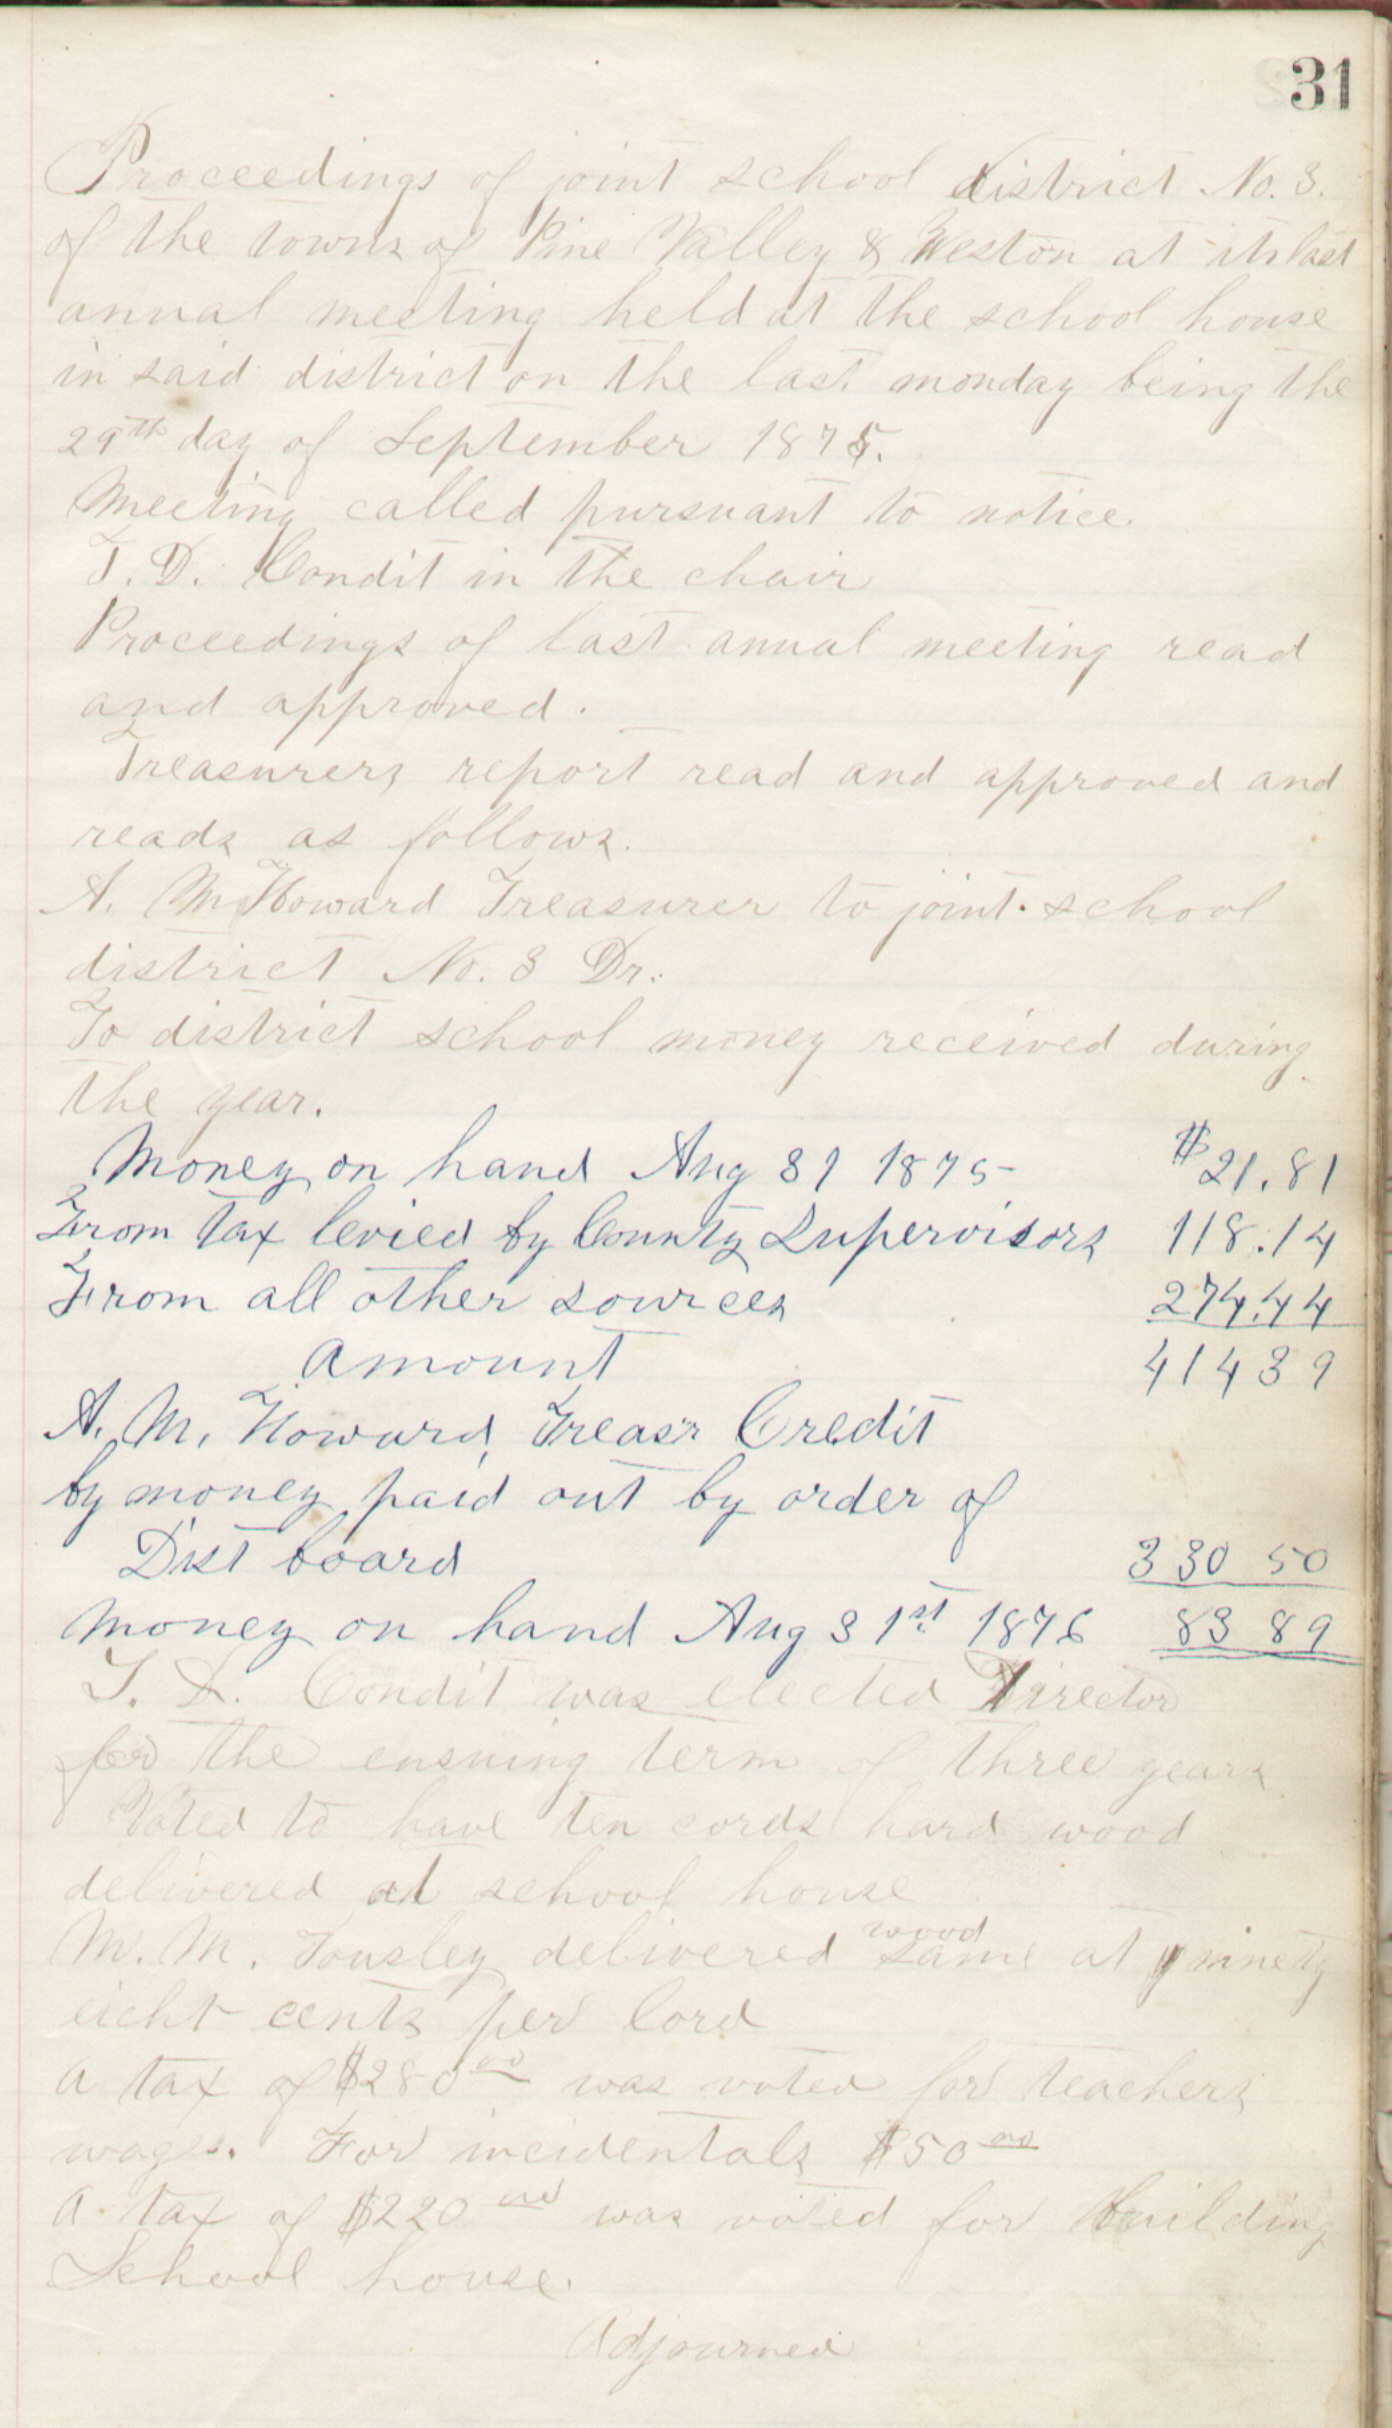 31
Proceedings of joint school district No. 3.
of the towns of Pine Valley & Weston at its last
annual meeting held at the school house
in said district on the last monday being the
29th day of September 1875.
Meeting called pursuant to notice.
T. D. Condit in the chair
Proceedings of last annual meeting read
and approved.
Treasurers report read and approved and
reads as follows.
A. M. Howard Treasurer to joint school
district No. 3 Dr.
To district school money received during
the year.
Money on hand Aug 31 1875 $21.81
From tax levied by County Supervisors 118.14
From all other sources 274.44
Amount 414 39
A. M. Howard, Treasr Credit
by money paid out by order of
Dist board 330 50
Money on hand Aug 31st 1876 83 89
T. D. Condit was elected Director
for the ensuing term of three years
Voted to have ten cords hard wood
delivered at school house
M. M. Tousley delivered wood same at ninety
eight cents per Cord
A tax of $280 00 was voted for teachers
wages. For incidentals $50 00
A tax of $220 00 was voted for building
School house.
Adjourned